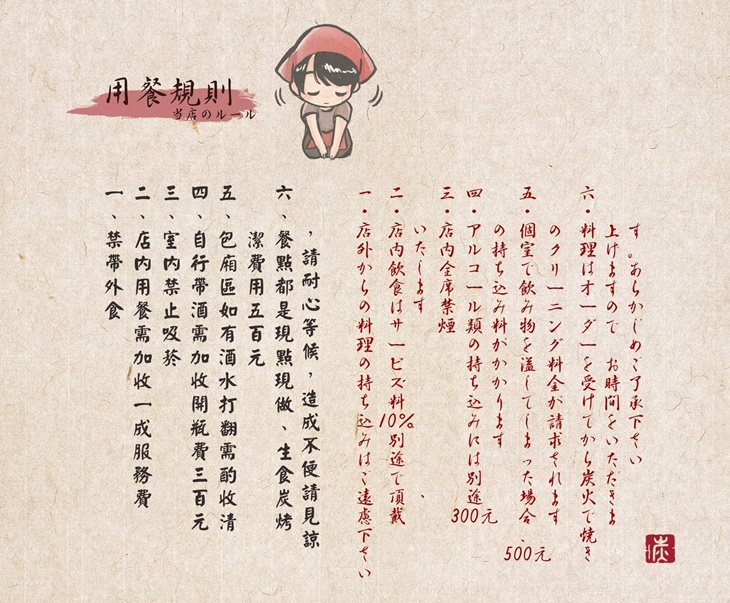 用餐規則
当店のルール
一、禁帶外食
二、店內用餐需加收一成服務費
三、室內禁止吸菸
四、自行帶酒需加收開瓶費三百元
五、包廂區如有酒水打翻需酌收清
潔費用五百元
六、餐點都是現點現做、生食炭烤
，請耐心等候，造成不便請見諒
一・店外からの料理の持ち込みはご遠慮下さい
二・店内飲食はサービズ料10%別途で頂戴
いたします
三・店内全席禁煙
四・アルコール類の持ち込みには別途300元
の持ち込み料がかかります
五・個室で飲み物を溢してしまった場合、500元
のクリーニング料金が請求されます
六・料理はオーダーを受けてから炭火で焼き
上げますので お時間をいただきま
す。あらかじめご了承下さい